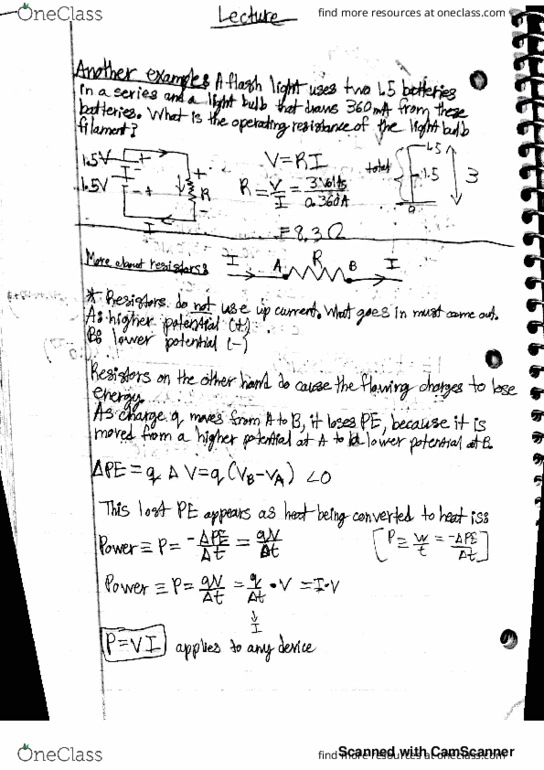 OneClass
find more resources at oneclass.com
Lecture
Another example: A flash light uses two 1.5 batteries
in a series and a light bulb that draws 360mA from these
batteries. What is the operating resistance of the light bulb
filament?
1.5V
1.5V
+
- +
I
+
R
-
V=RI
R = V/I = 3 Volts/0.360A
= 8.3 Ω
total
1.5
1.5
0
3
More about resistors:
I A R B I
* Resistors do not use up current. What goes in must come out.
A: higher potential (+)
B: lower potential (-)
Resistors on the other hand do cause the flowing charges to lose
energy.
As charge q moves from A to B, it loses PE, because it is
moved from a higher potential at A to a lower potential at B.
ΔPE = q ΔV = q (VB - VA) < 0
This lost PE appears as heat being converted to heat is:
Power ≡ P = -ΔPE/Δt = qV/Δt
[P ≡ W/t = -ΔPE/Δt]
Power ≡ P = qV/Δt = q/Δt • V = I•V
↓
I
P=VI applies to any device
OneClass
find more resources at oneclass.com
Scanned with CamScanner